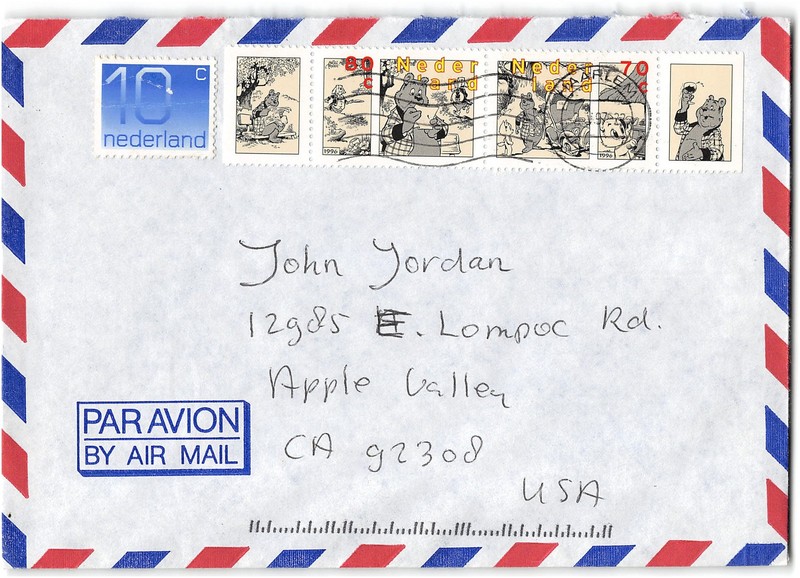 10 c
nederland
80 c
Nederland
1996
Nederland
70 c
1996
HAARLEM
John Jordan
12985 E. Lompoc Rd.
Apple Valley
CA 92308
USA
PAR AVION
BY AIR MAIL